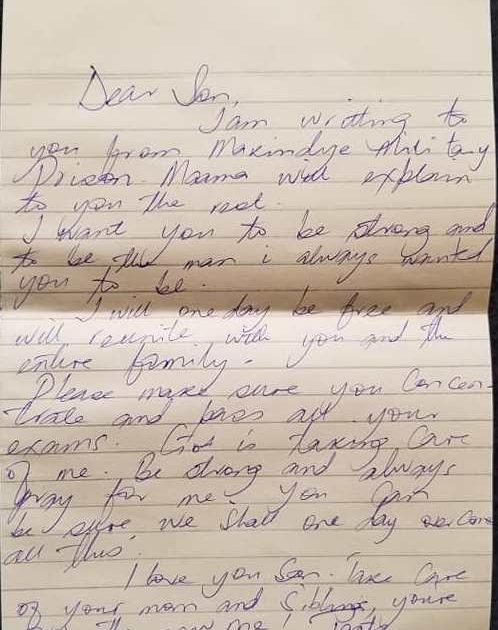 Dear Son,
I am writing to
you from Makindye Military
Prison. Maama will explain
to you the rest.
I want you to be strong and
to be the man i always wanted
you to be.
I will one day be free and
will reunite with you and the
entire family.
Please make sure you Concen-
trate and pass all your
exams. God is taking Care
of me. Be strong and always
pray for me. You Can
be sure, we shall one day overcome
all this.
I love you Son. Take Care
of your mom and Siblings, youre
me